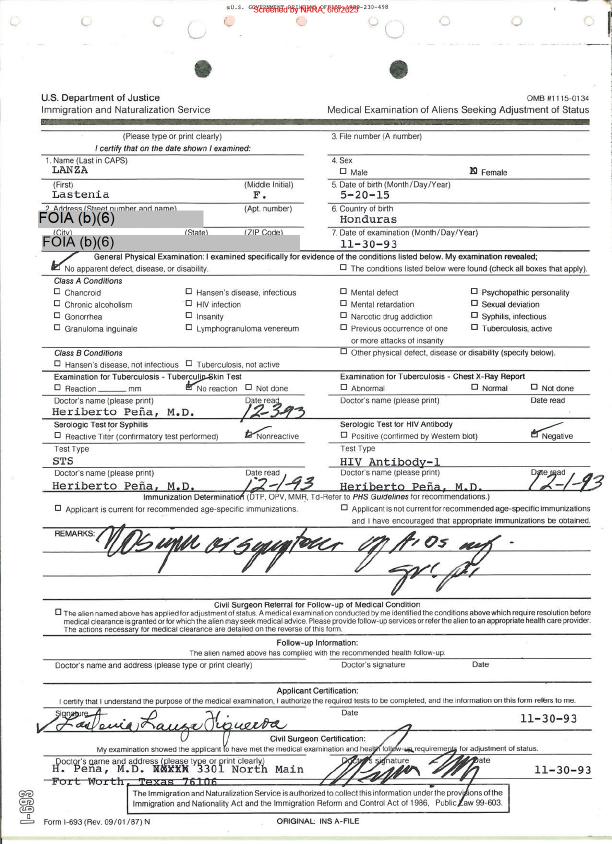 U.S. GOVERNMENT PRINTING OFFICE: 1989-230-498
Screened by NARA, 6/6/2023
U.S. Department of Justice
Immigration and Naturalization Service
OMB #1115-0134
Medical Examination of Aliens Seeking Adjustment of Status
(Please type or print clearly)
I certify that on the date shown I examined:
3. File number (A number)
1. Name (Last in CAPS)
LANZA
4. Sex
Male Female
(First) (Middle Initial)
Lastenia F.
5. Date of birth (Month/Day/Year)
5-20-15
2. Address (Street number and name) (Apt. number)
FOIA (b)(6)
6. Country of birth
Honduras
(City) (State) (ZIP Code)
FOIA (b)(6)
7. Date of examination (Month/Day/Year)
11-30-93
General Physical Examination: I examined specifically for evidence of the conditions listed below. My examination revealed;
No apparent defect, disease, or disability.
The conditions listed below were found (check all boxes that apply).
Class A Conditions
Chancroid Hansen's disease, infectious Mental defect Psychopathic personality
Chronic alcoholism HIV infection Mental retardation Sexual deviation
Gonorrhea Insanity Narcotic drug addiction Syphilis, infectious
Granuloma inguinale Lymphogranuloma venereum Previous occurrence of one or more attacks of insanity Tuberculosis, active
Class B Conditions
Other physical defect, disease or disability (specify below).
Hansen's disease, not infectious Tuberculosis, not active
Examination for Tuberculosis - Tuberculin Skin Test
Reaction mm No reaction Not done
Doctor's name (please print) Date read
Heriberto Peña, M.D. 12-3-93
Examination for Tuberculosis - Chest X-Ray Report
Abnormal Normal Not done
Doctor's name (please print) Date read
Serologic Test for Syphilis
Reactive Titer (confirmatory test performed) Nonreactive
Test Type
STS
Doctor's name (please print) Date read
Heriberto Peña, M.D. 12-1-93
Serologic Test for HIV Antibody
Positive (confirmed by Western blot) Negative
Test Type
HIV Antibody-1
Doctor's name (please print) Date read
Heriberto Peña, M.D. 12-1-93
Immunization Determination (DTP, OPV, MMR, Td-Refer to PHS Guidelines for recommendations.)
Applicant is current for recommended age-specific immunizations.
Applicant is not current for recommended age-specific immunizations
and I have encouraged that appropriate immunizations be obtained.
REMARKS: No sign or symptoms of AIDS
Civil Surgeon Referral for Follow-up of Medical Condition
The alien named above has applied for adjustment of status. A medical examination conducted by me identified the conditions above which require resolution before
medical clearance is granted or for which the alien may seek medical advice. Please provide follow-up services or refer the alien to an appropriate health care provider.
The actions necessary for medical clearance are detailed on the reverse of this form.
Follow-up Information:
The alien named above has complied with the recommended health follow-up.
Doctor's name and address (please type or print clearly) Doctor's signature Date
Applicant Certification:
I certify that I understand the purpose of the medical examination, I authorize the required tests to be completed, and the information on this form refers to me.
Signature Date
Lastenia Lanza Figueroa 11-30-93
Civil Surgeon Certification:
My examination showed the applicant to have met the medical examination and health follow-up requirements for adjustment of status.
Doctor's name and address (please type or print clearly) Doctor's signature Date
H. Peña, M.D. XXXXX 3301 North Main 11-30-93
Fort Worth, Texas 76106
The Immigration and Naturalization Service is authorized to collect this information under the provisions of the
Immigration and Nationality Act and the Immigration Reform and Control Act of 1986, Public Law 99-603.
I-693
Form I-693 (Rev. 09/01/87) N
ORIGINAL: INS A-FILE